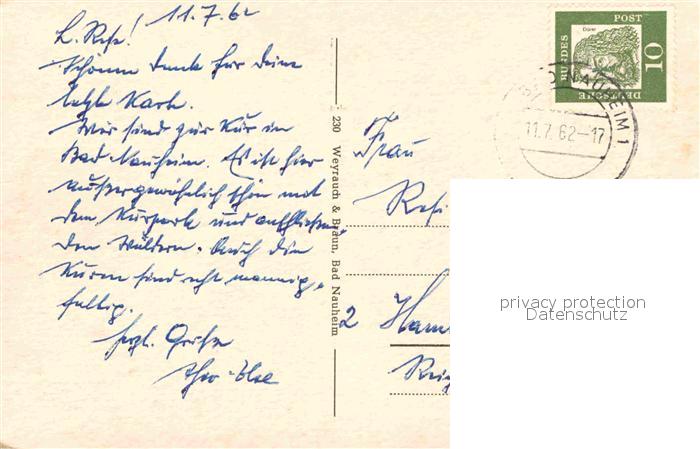 11.7.62
L. Resi!
Schönen Dank für Deine
letzte Karte.
Wir sind zur Kur in
Bad Nauheim. Es ist hier
außergewöhnlich schön mit
dem Kurpark und anschließenden
den Wäldern. Auch die
Kuren sind recht mannig-
faltig.
Herzl. Grüße
230 Weyrauch & Braun, Bad Nauheim
DEUTSCHE
BUNDES
POST
Dürer
10
BAD NAUHEIM 1
11.7.62-17
Frau
Resi
2 Ham
privacy protection
Datenschutz